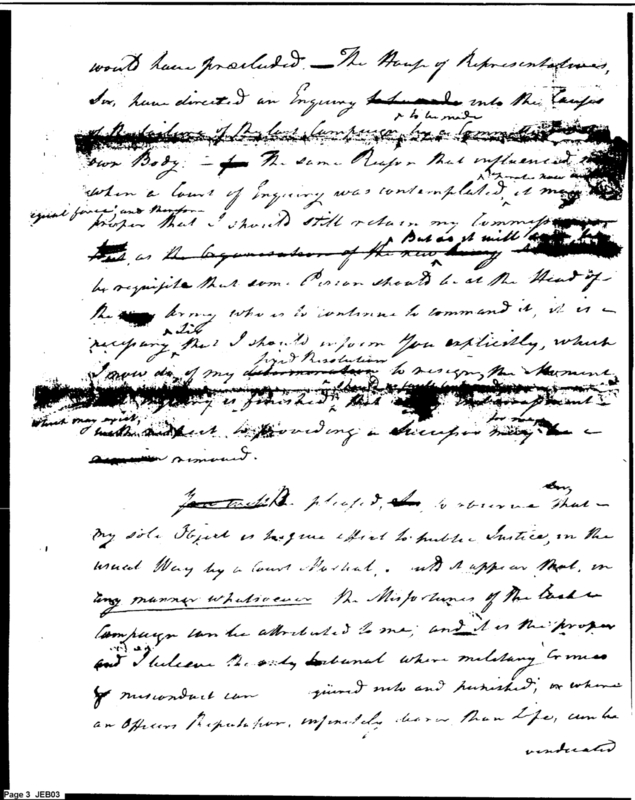 would have precluded. — The House of Representatives,
Sir, have directed an Enquiry to be made into the Causes
to be made
of the failure of the last Campaign, by a Committee
own Body. — The same Reason that influenced
when a Court of Enquiry was contemplated,
equal force, and therefore
proper that I should still retain my Commission
But as it will
but, as the Organization of the new Army
be requisite that some Person should be at the Head of
the Army who is to continue to command it, it is
necessary that I should inform You explicitly, which
fixed Resolution
I now do, of my determination to resign, the Moment
is finished, that
which may exist,
with respect to providing a Successor may be
removed.
You will Be pleased, Sir, to observe that
my sole Object is to give effect to public Justice, in the
usual Way by a Court Martial, it appear that, in
any manner whatsoever the Misfortunes of the last
Campaign can be attributed to me; and it is the proper
and I beleeve the only tribunal where military Crimes
misconduct can quired into and punished; or where
an Officers Reputation, infinitely dearer than Life, can be
vindicated
Page 3 JEB03